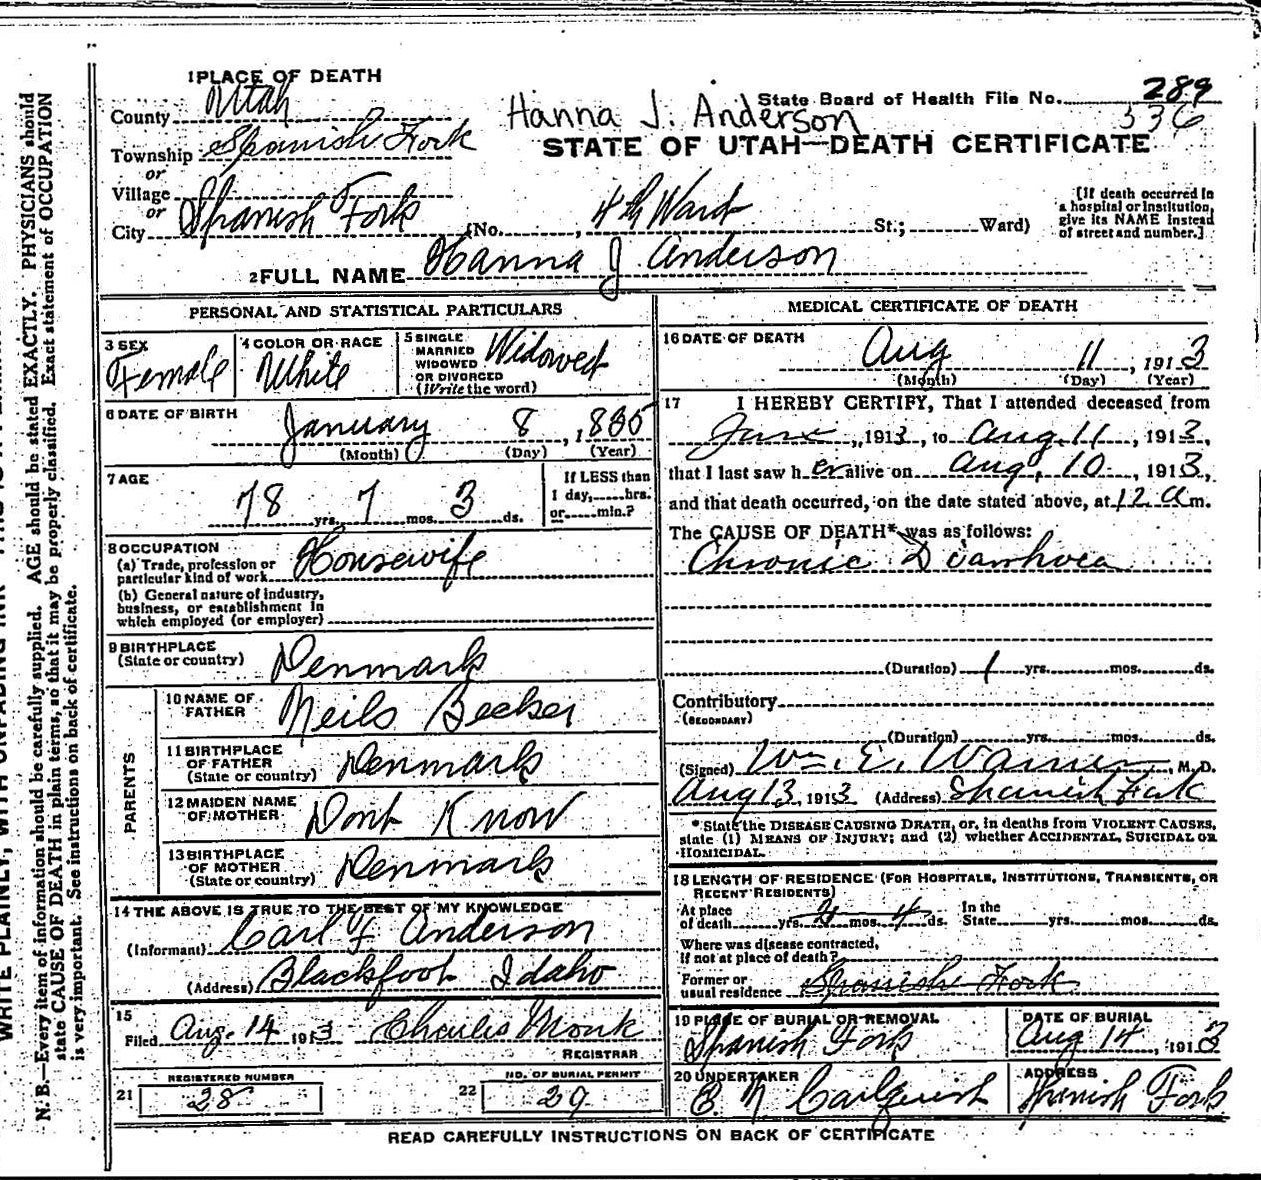 1 PLACE OF DEATH
County Utah
Township Spanish Fork
or
Village
or
City Spanish Fork (No. , 4th Ward St.; Ward)
Hanna J. Anderson
State Board of Health File No. 289
336
STATE OF UTAH—DEATH CERTIFICATE
[If death occurred in
a hospital or institution,
give its NAME instead
of street and number.]
2 FULL NAME Hanna J. Anderson
PERSONAL AND STATISTICAL PARTICULARS
3 SEX
Female
4 COLOR OR RACE
White
5 SINGLE
MARRIED
WIDOWED
OR DIVORCED
(Write the word)
Widowed
6 DATE OF BIRTH
January 8, 1835
(Month) (Day) (Year)
7 AGE
78 yrs. 7 mos. 3 ds.
If LESS than
1 day, hrs.
or min.?
8 OCCUPATION
(a) Trade, profession or
particular kind of work Housewife
(b) General nature of industry,
business, or establishment in
which employed (or employer)
9 BIRTHPLACE
(State or country) Denmark
PARENTS
10 NAME OF
FATHER Neils Becker
11 BIRTHPLACE
OF FATHER
(State or country) Denmark
12 MAIDEN NAME
OF MOTHER Dont Know
13 BIRTHPLACE
OF MOTHER
(State or country) Denmark
14 THE ABOVE IS TRUE TO THE BEST OF MY KNOWLEDGE
(Informant) Carl F Anderson
(Address) Blackfoot Idaho
15
Filed Aug. 14 1913 Charles Monk
REGISTRAR
REGISTERED NUMBER
21 28
NO. OF BURIAL PERMIT
22 29
MEDICAL CERTIFICATE OF DEATH
16 DATE OF DEATH
Aug 11, 1913
(Month) (Day) (Year)
17 I HEREBY CERTIFY, That I attended deceased from
June, 1913, to Aug. 11, 1913,
that I last saw her alive on Aug, 10, 1913,
and that death occurred, on the date stated above, at 12 a m.
The CAUSE OF DEATH* was as follows:
Chronic Diarrhoea
(Duration) 1 yrs. mos. ds.
Contributory
(SECONDARY)
(Duration) yrs. mos. ds.
(Signed) Wm. E. Warner, M. D.
Aug 13, 1913 (Address) Spanish Fork
*State the DISEASE CAUSING DEATH, or, in deaths from VIOLENT CAUSES,
state (1) MEANS OF INJURY; and (2) whether ACCIDENTAL, SUICIDAL OR
HOMICIDAL.
18 LENGTH OF RESIDENCE (FOR HOSPITALS, INSTITUTIONS, TRANSIENTS, OR
RECENT RESIDENTS)
At place
of death yrs. mos. 4 ds.
In the
State yrs. mos. ds.
Where was disease contracted,
if not at place of death?
Former or
usual residence Spanish Fork
19 PLACE OF BURIAL OR REMOVAL
Spanish Fork
DATE OF BURIAL
Aug 14, 1913
20 UNDERTAKER
ADDRESS
Spanish Fork
READ CAREFULLY INSTRUCTIONS ON BACK OF CERTIFICATE
N. B.—Every item of information should be carefully supplied. AGE should be stated EXACTLY. PHYSICIANS should
state CAUSE OF DEATH in plain terms, so that it may be properly classified. Exact statement of OCCUPATION
is very important. See instructions on back of certificate.